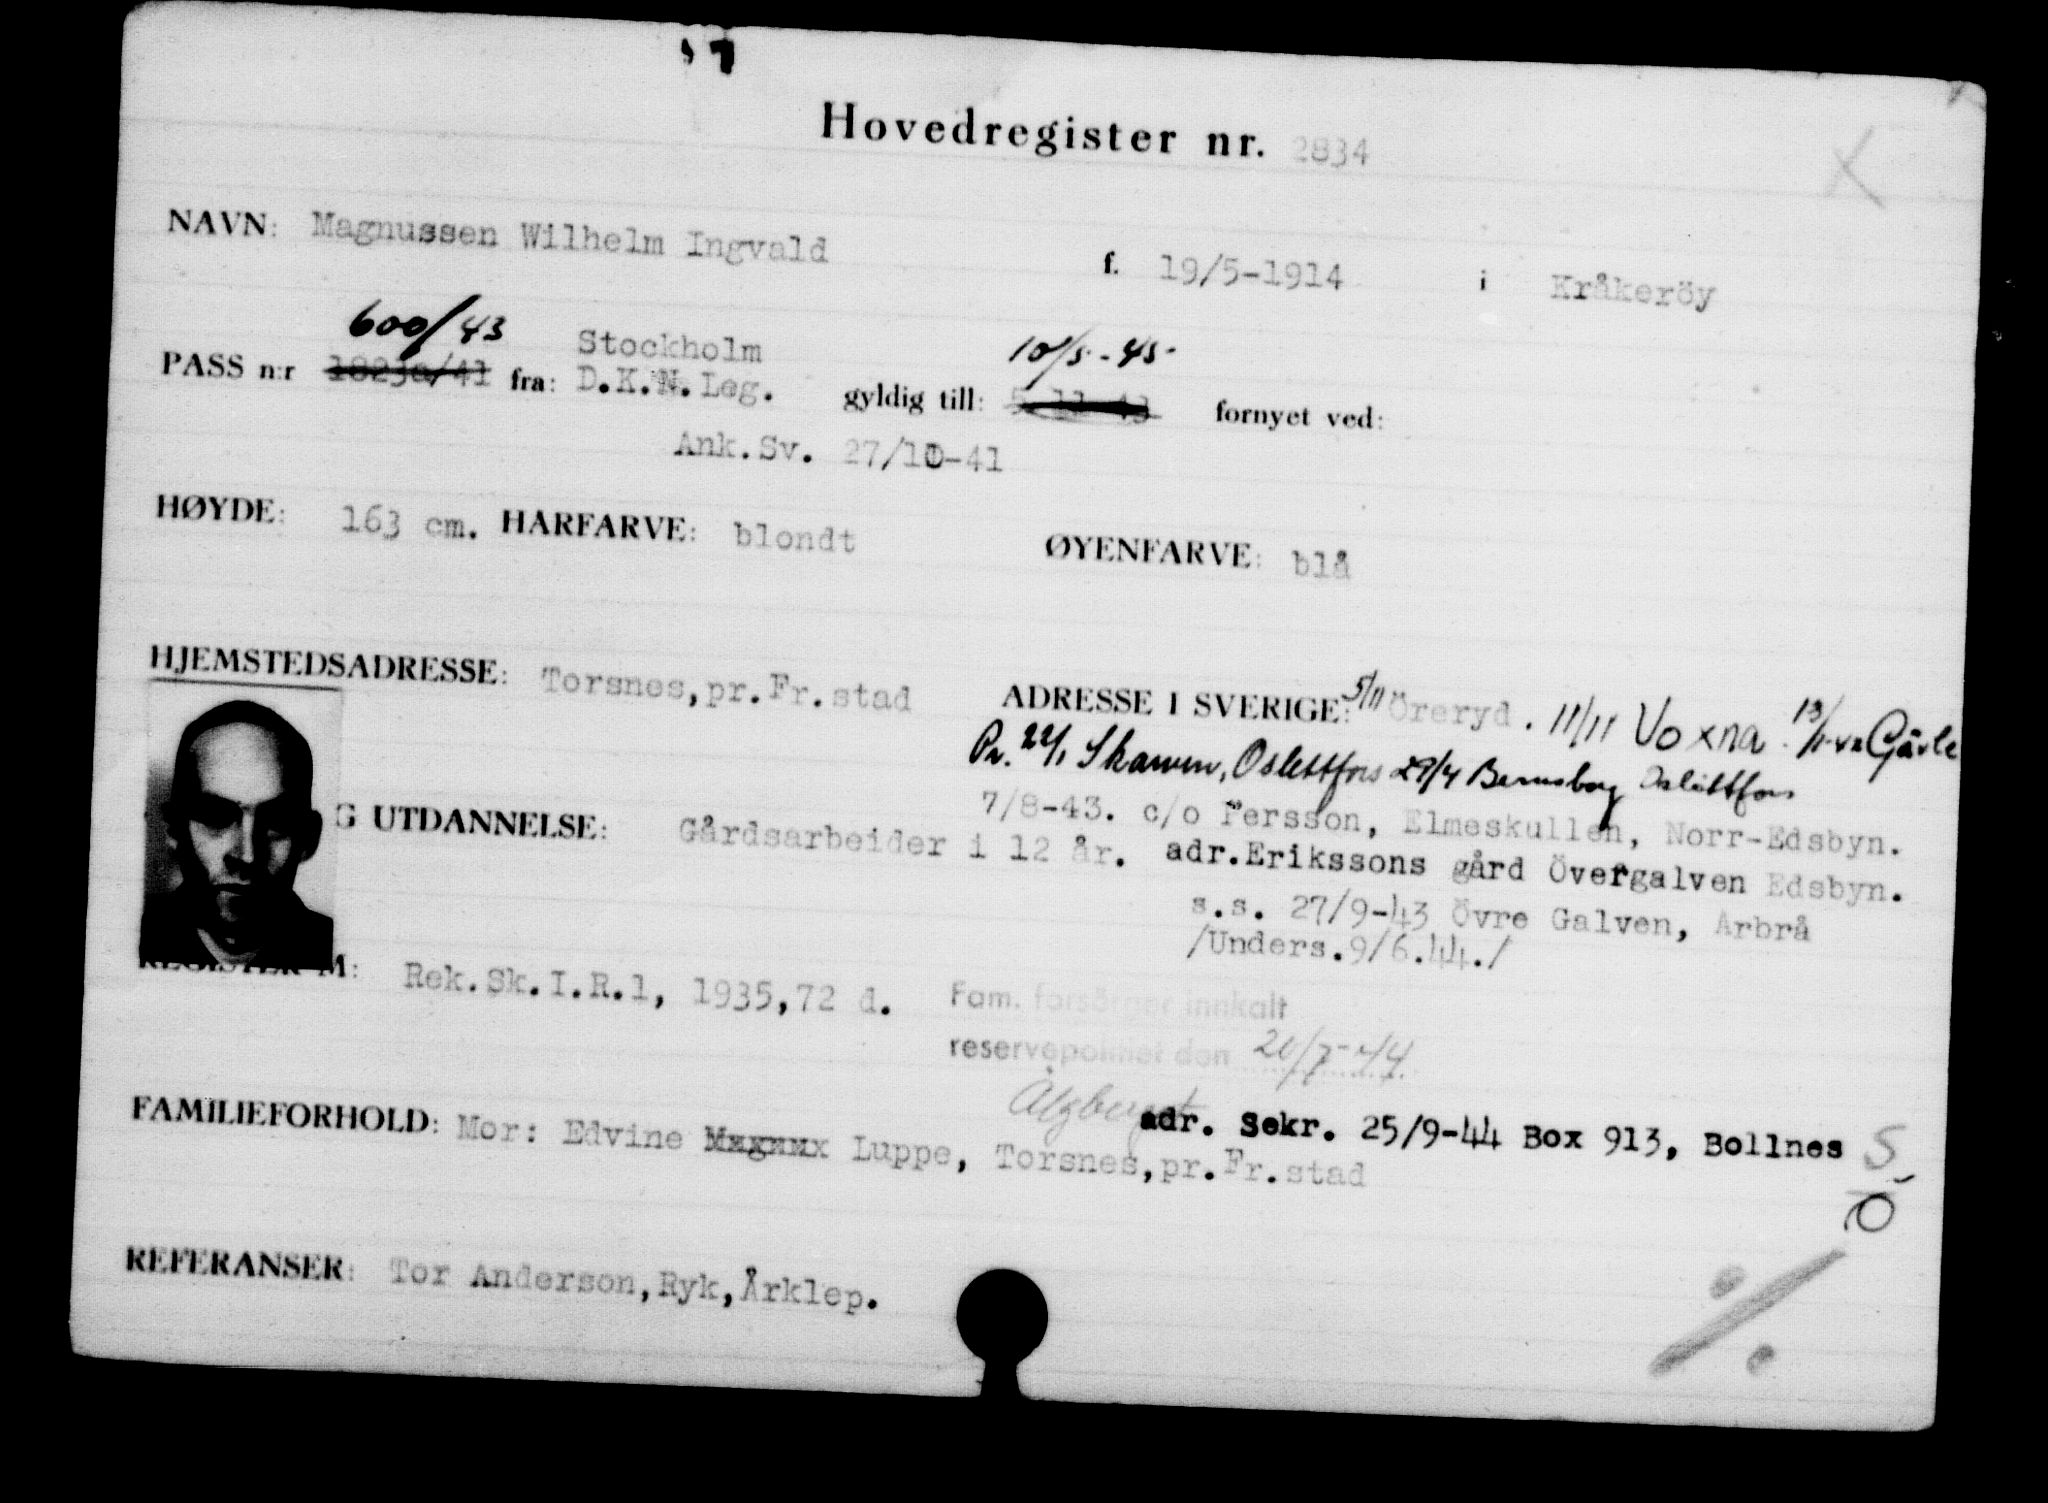 Hovedregister nr. 2834
NAVN: Magnussen Wilhelm Ingvald f. 19/5-1914 i Kråkeröy
600/43 Stockholm 10/5-45
PASS n:r 18230/41 fra: D.K.N.Leg. gyldig till: 5 11 43 fornyet ved:
Ank.Sv. 27/10-41
HØYDE: 163 cm. HARFARVE: blondt ØYENFARVE: blå
HJEMSTEDSADRESSE: Torsnes,pr.Fr.stad ADRESSE I SVERIGE: 5/11 Öreryd. 11/11 Voxna. 13/1 Gävle
Pr. 22/1 Oslettfors 29/4 Oslättfors
7/8-43. c/o Persson, Elmeskullen, Norr-Edsbyn.
G UTDANNELSE: Gårdsarbeider i 12 år. adr.Erikssons gård Övergalven Edsbyn.
s.s. 27/9-43 Övre Galven, Arbrå
/Unders.9/6.44./
REGISTER M: Rek.Sk.I.R.1, 1935,72 d. Fam. forsörger innkalt
reservepolitiet den 20/7-44
Älgberget
adr. Sekr. 25/9-44 Box 913, Bollnes 5
FAMILIEFORHOLD: Mor: Edvine Luppe, Torsnes,pr.Fr.stad
REFERANSER: Tor Anderson,Ryk,Årklep.